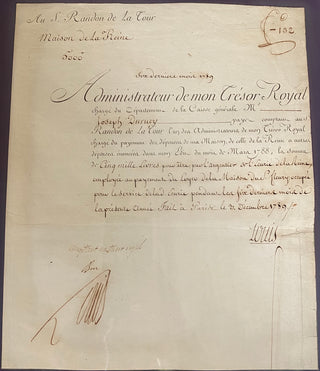 Au S. Randon de la Tour
Maison de la Reine
5000
Six derniers mois 1789
Administrateur de mon Trésor Royal
chargé du Département de la Caisse générale Mᵉ
Joseph Duruey payez comptant au S.
Randon de la Tour l'un des Administrateurs de mon Trésor Royal
chargé du payement des dépenses de ma Maison, de celle de la Reine et autres
dépenses énoncées dans mon Edit du mois de Mars 1788, la somme
de Cinq mille livres pour être par l'argentier de l'Ecurie de la Reine
employée au payement du loyer de la Maison du Sr. fleury occupée
pour le service de lad. Ecurie pendant les six derniers mois de
la présente année. Fait à Paris le 31 Décembre 1789
Louis
Bon
Louis